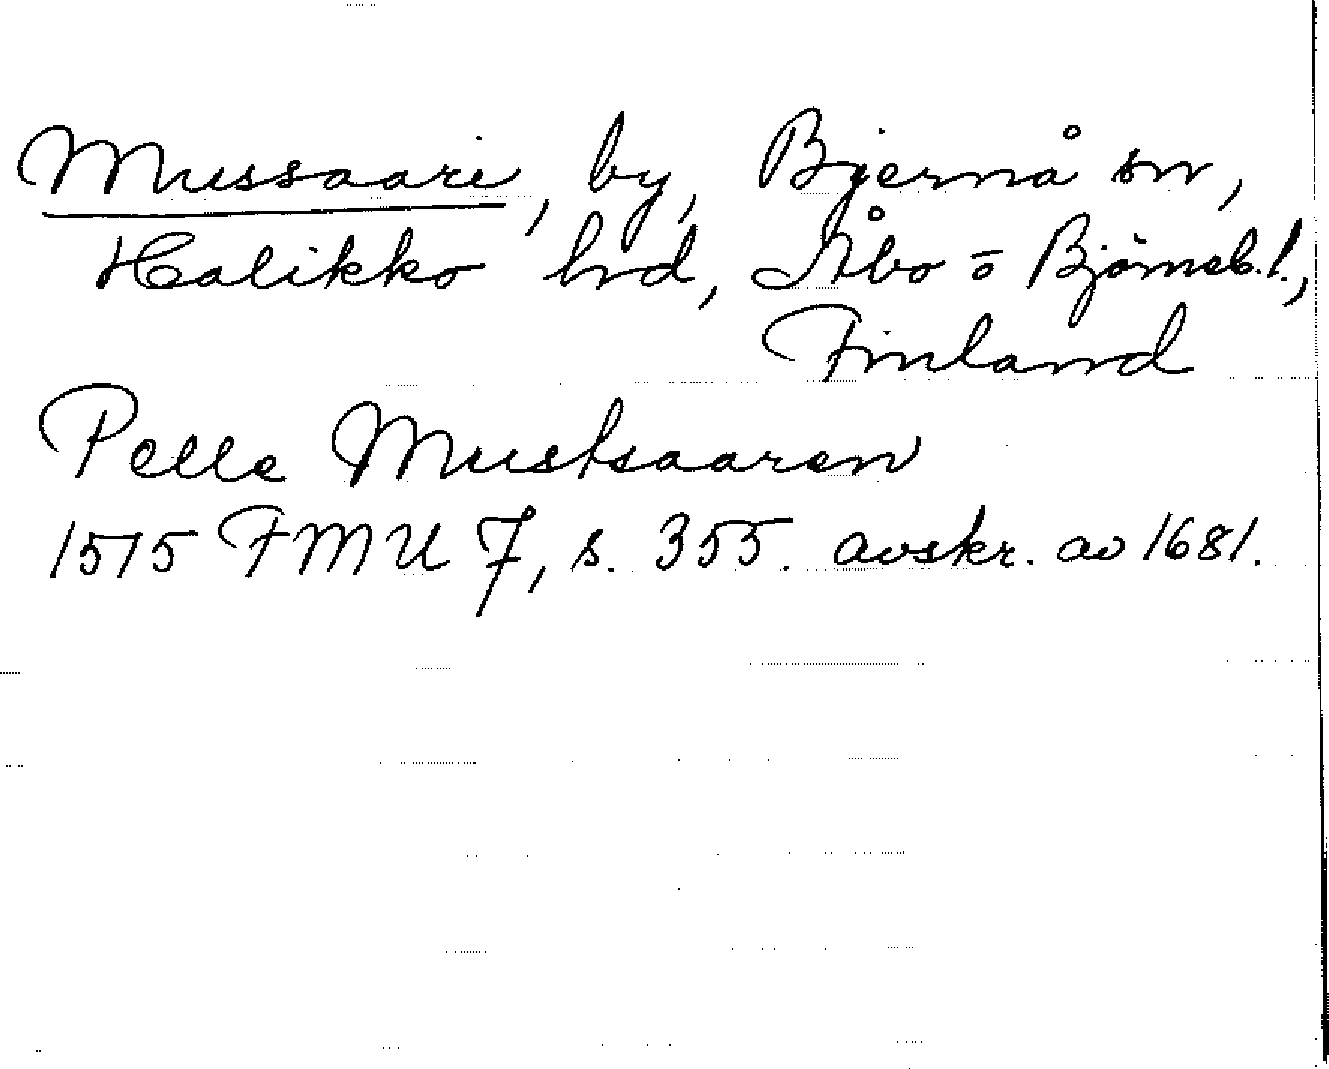 Mussaari, by, Bjernå sn,
Halikko hrd, Åbo o Björneb.l.,
Finland
Pelle Mustsaaren
1515 FMU 7, s. 355. avskr. av 1681.